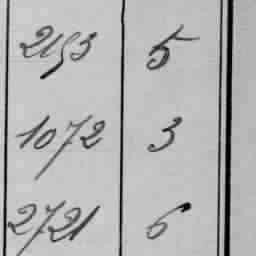 2193 5
1072 3
2721 6